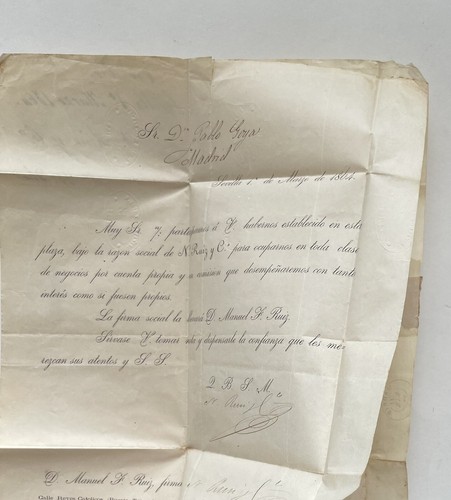 Sr. Dn. Pablo Goya
Madrid
Sevilla 1º de Mayo de 1864.
Muy Sr. 7: participamos á V. habernos establecido en esta
plaza, bajo la razon social de N. Ruiz y C.ª para ocuparnos en toda clase
de negocios por cuenta propia y en comision que desempeñaremos con tanto
interés como si fuesen propios.
La firma social la llevará D. Manuel F. Ruiz.
Sírvase V. tomar nota y dispensarle la confianza que les me-
rezcan sus atentos y S. S.
Q. B. S. M.
N. Ruiz y Cª
D. Manuel F. Ruiz, firma N. Ruiz y Cª